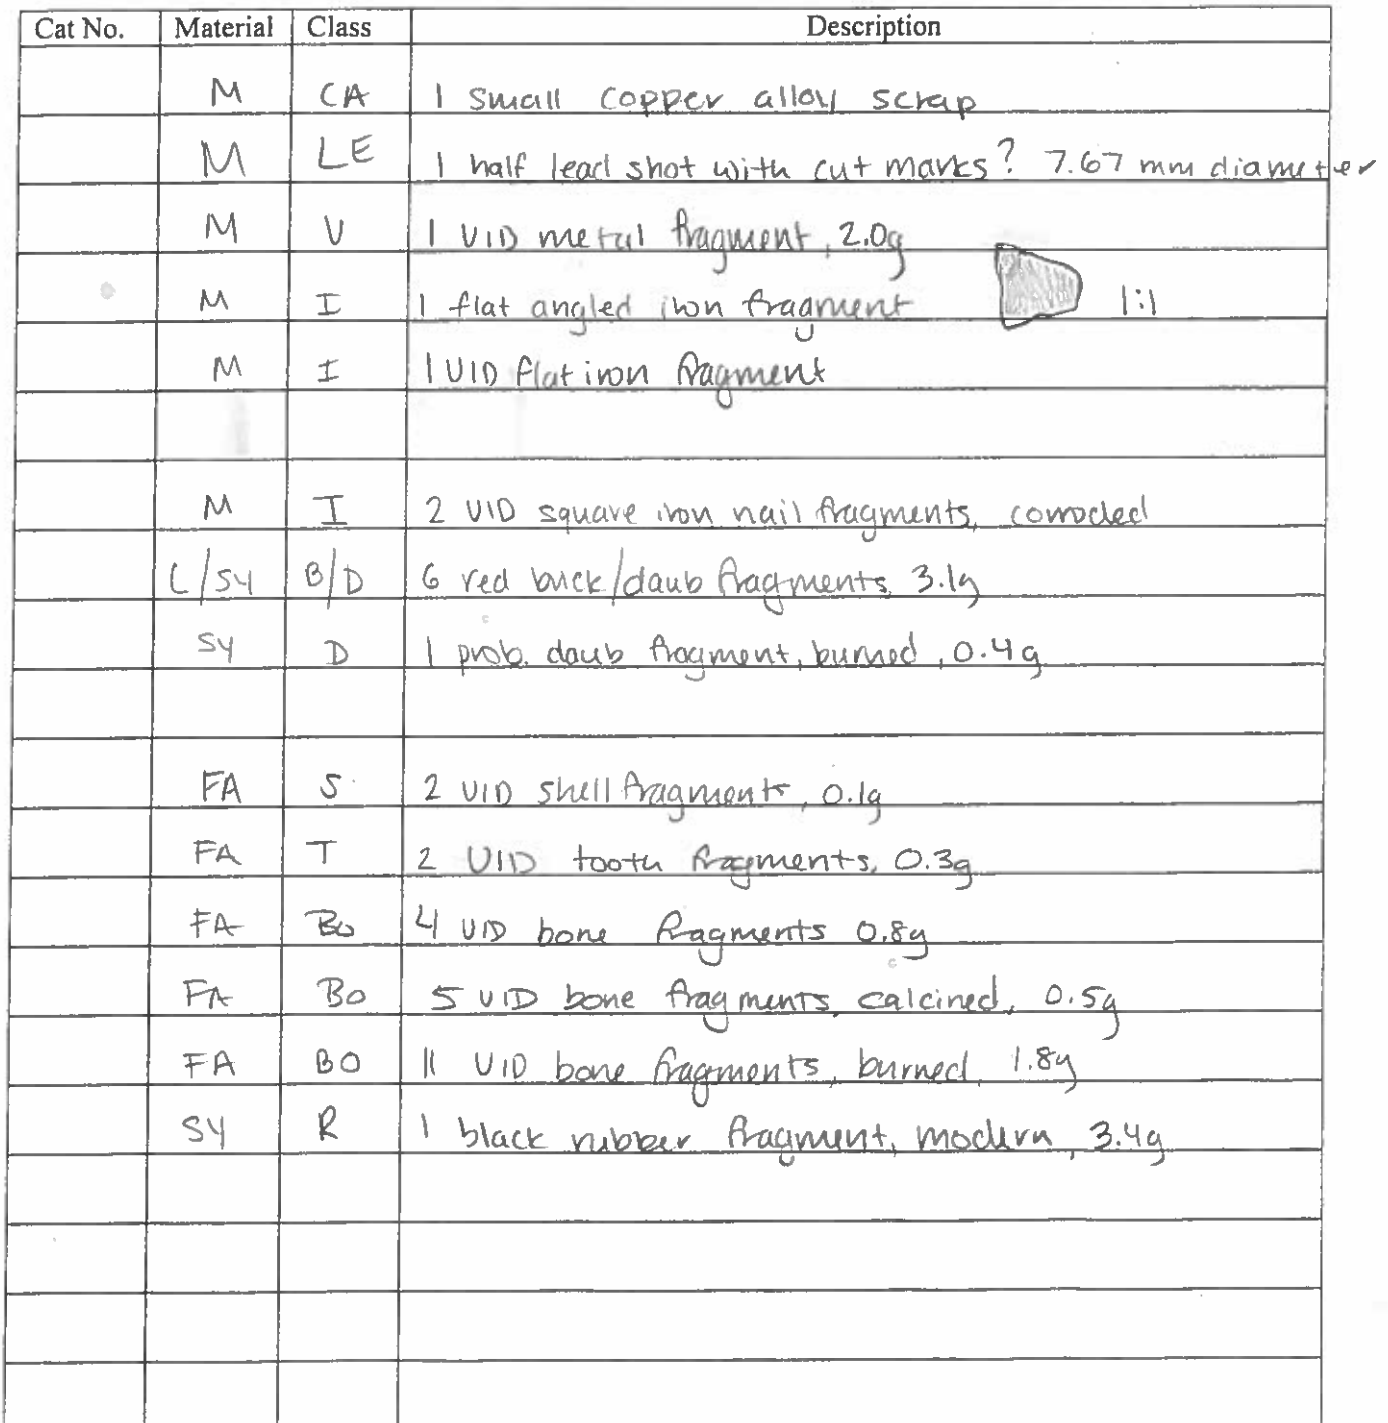 Cat No. Material Class Description
M CA 1 small copper alloy scrap
M LE 1 half lead shot with cut marks? 7.67 mm diameter
M U 1 UID metal fragment, 2.0g
M I 1 flat angled iron fragment 1:1
M I 1 UID flat iron fragment
M I 2 UID square iron nail fragments, corroded
C/SY B/D 6 red brick/daub fragments, 3.1g
SY D 1 prob. daub fragment, burned, 0.4g
FA S 2 UID shell fragments, 0.1g
FA T 2 UID tooth fragments, 0.3g
FA Bo 4 UID bone fragments 0.8g
FA Bo 5 UID bone fragments, calcined, 0.5g
FA BO 11 UID bone fragments, burned, 1.8g
SY R 1 black rubber fragment, modern, 3.4g